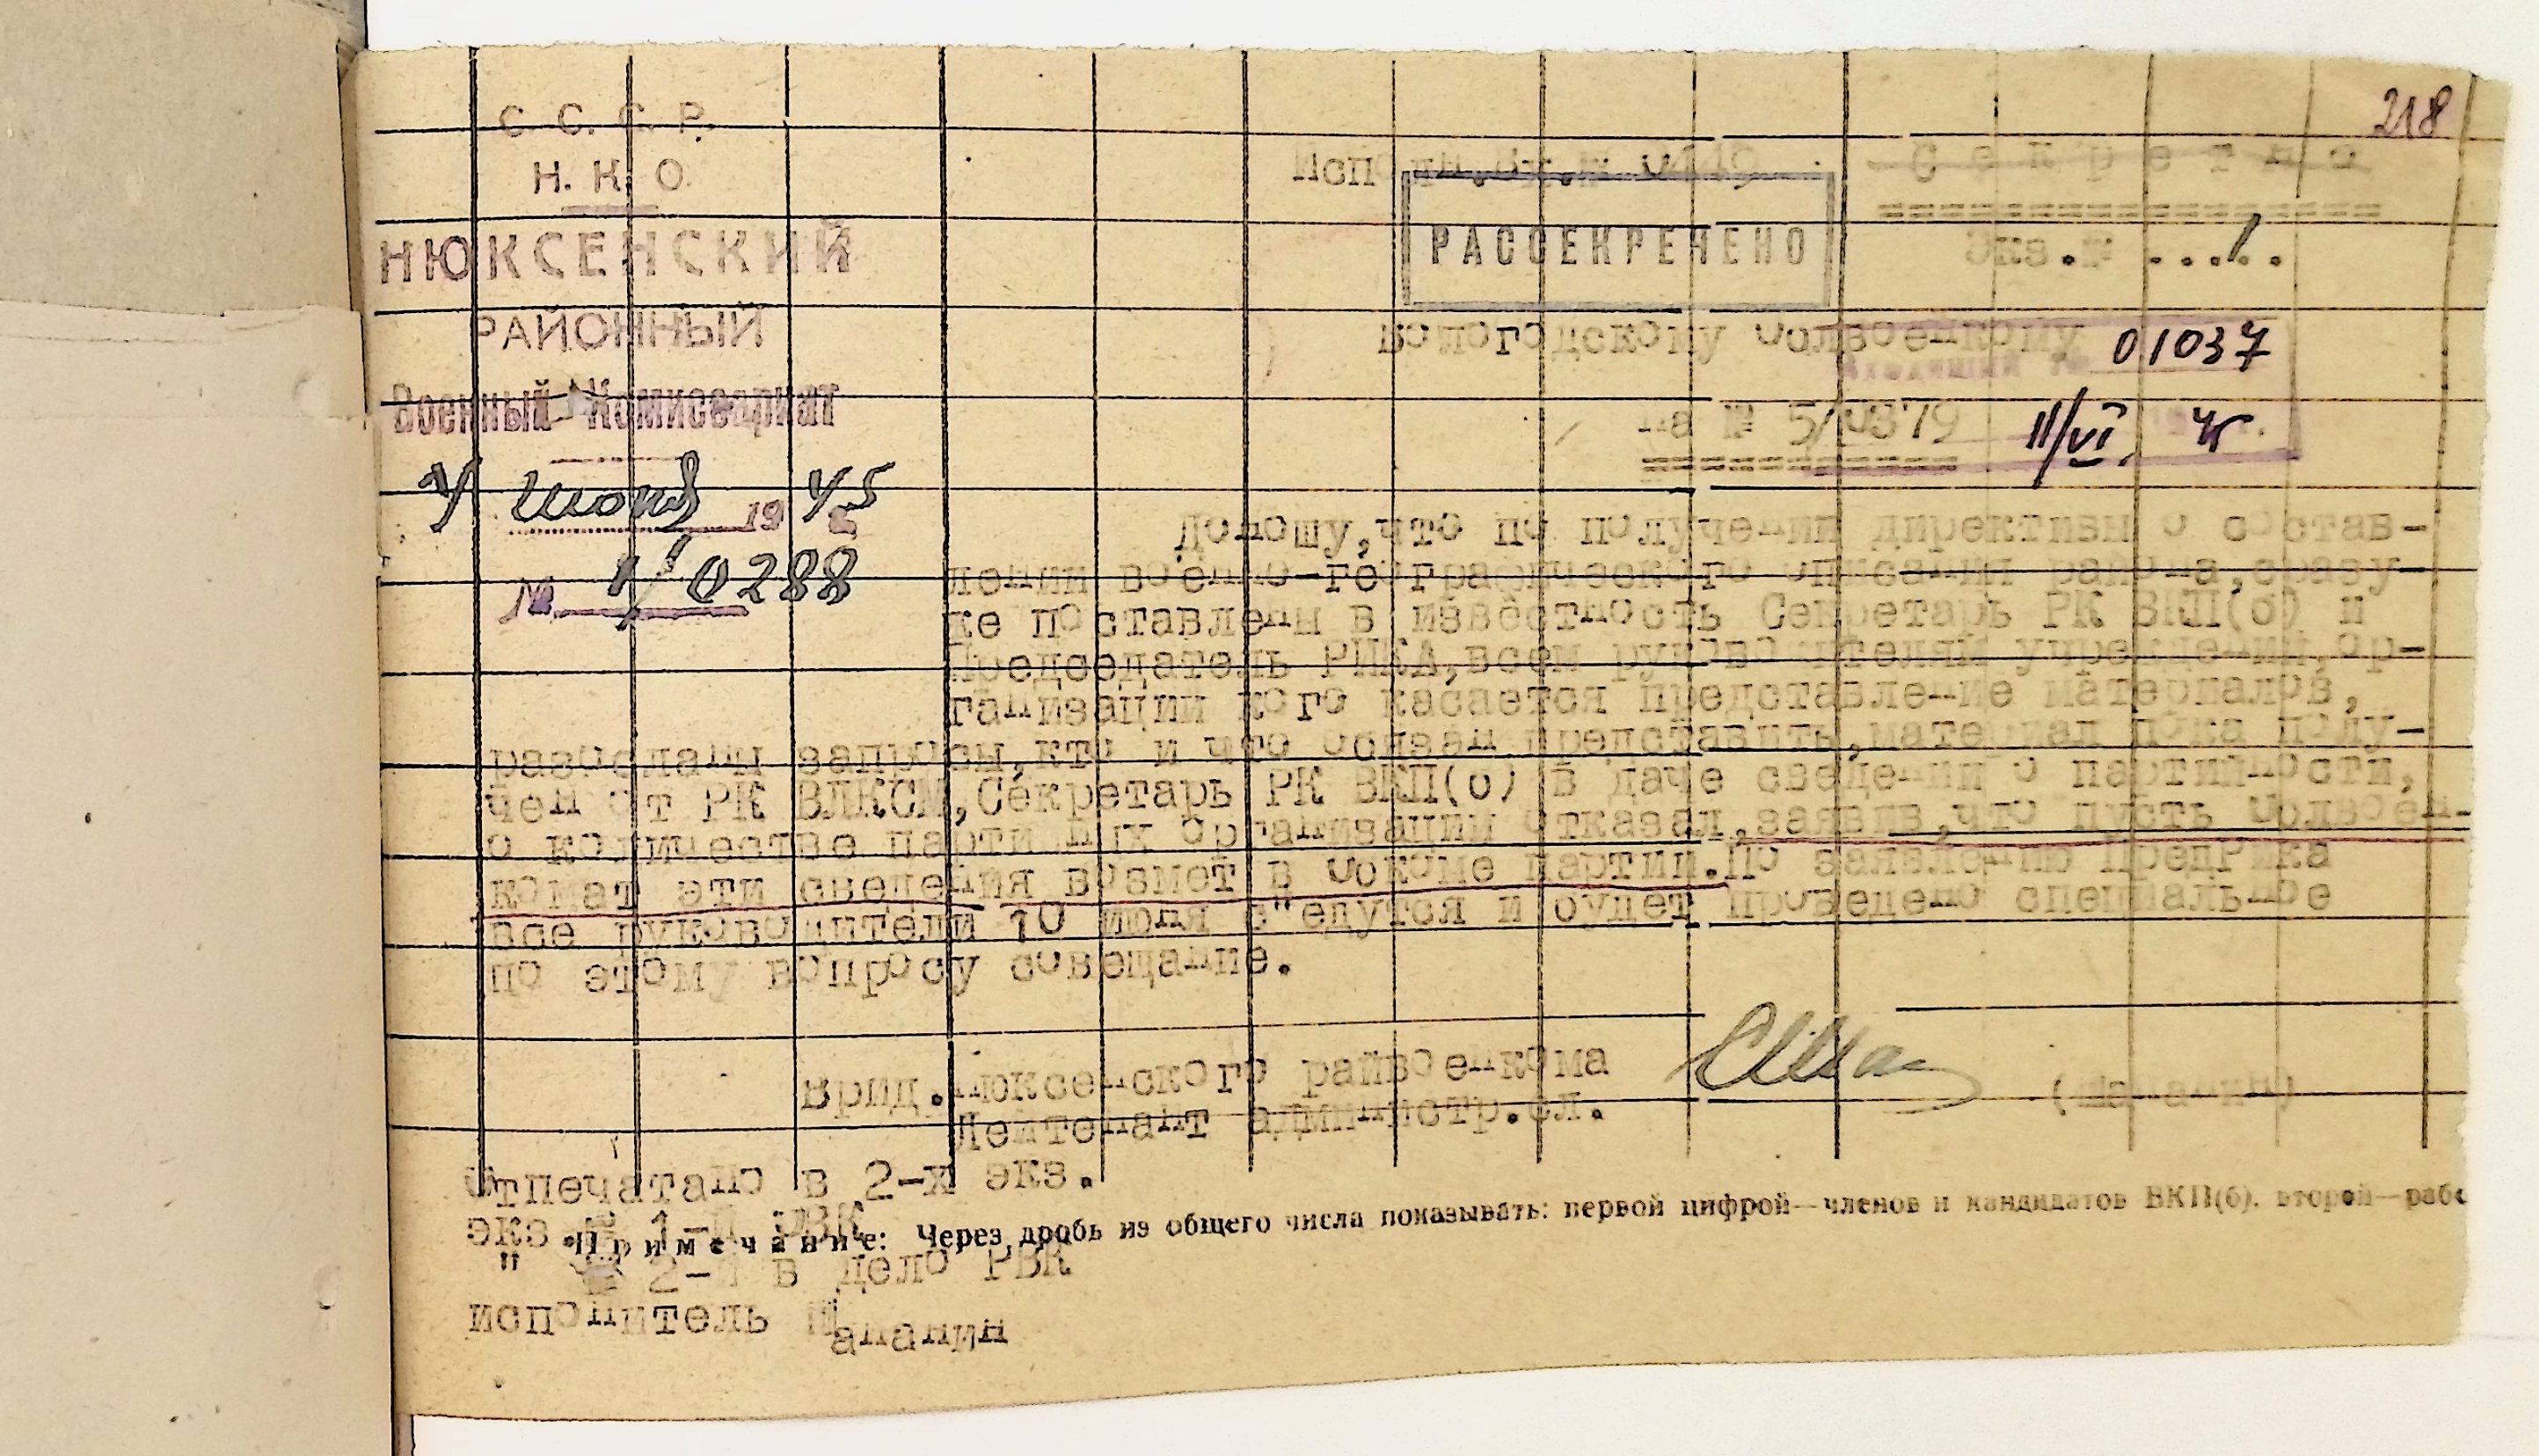 218
С. С. С. Р.
Н. К. О.
НЮКСЕНСКИЙ
РАЙОННЫЙ
Военный Комиссариат
июня 1945
№ 1/0288
Секретно
РАССЕКРЕЧЕНО
Экз.№ ...1..
Вологодскому Облвоенкому
Входящий № 01037
11/VI 45 г.
на № 5/0379
Доношу,что по получении директивы о состав-
лении военно-географического описания района,сразу-
же поставлены в известность Секретарь РК ВКП(б) и
Председатель РИКА,всем руководителям учреждений,ор-
ганизации кого касается представление материалов,
разосланы запросы,кто и что обязан представить,материал пока полу-
чен от РК ВЛКСМ,Секретарь РК ВКП(б) в даче сведений о партийности,
о количестве партийных организации отказал,заявив,что пусть Облвоен-
комат эти сведения возмет в Обкоме партии.По заявлению предРИКа
все руководители 10 июня с"едутся и будет проведено специальное
по этому вопросу совещание.
Врид.Нюксенского райвоенкома
Лейтенант администр.сл.
Отпечатано в 2-х экз.
экз № 1-й ОВК
" № 2-й в дело РВК
Примечание: Через дробь из общего числа показывать: первой цифрой—членов и кандидатов ВКП(б). второй—рабо